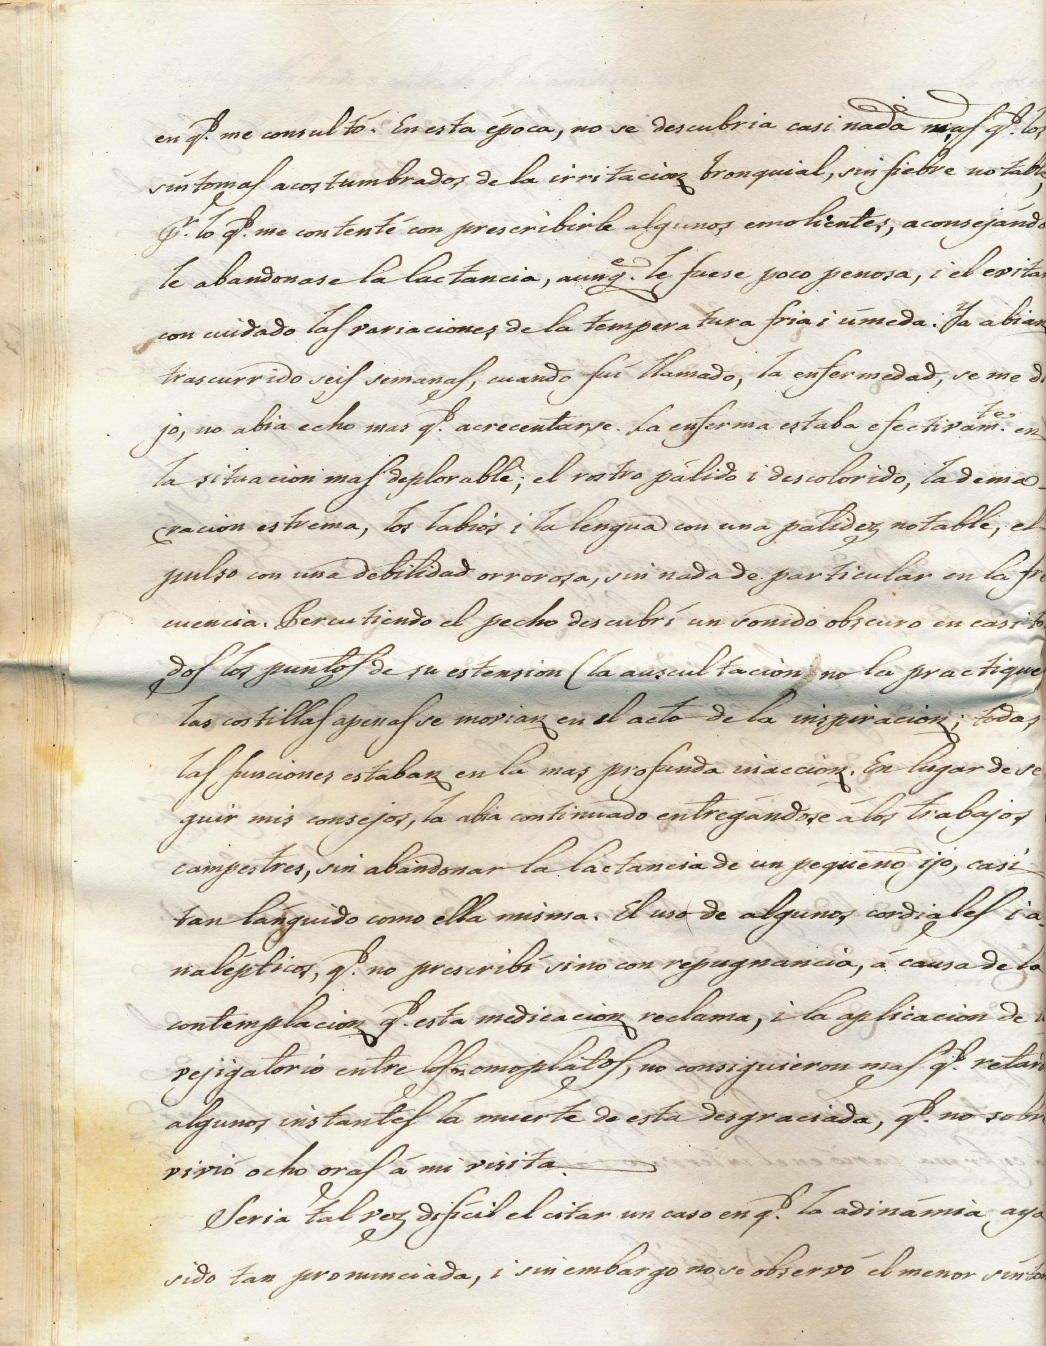 en qᵉ. me consultó. En esta época, no se descubria casi nada mas qᵉ. los
síntomas acostumbrados de la irritacion bronquial, sin fiebre notable,
pʳ. lo qᵉ. me contenté con prescribirle algunos emolientes, aconsejándo
le abandonase la lactancia, aunqᵉ. le fuese poco penosa, i el evitar
con cuidado las variaciones de la temperatura fria i úmeda. Ya abian
trascurrido seis semanas, cuando fuí llamado, la enfermedad, se me di
jo, no abia echo mas qᵉ. acrecentarse. La enferma estaba efectivamᵗᵉ. en
la situacion mas deplorable; el rostro pálido i descolorido, la dema-
cracion estrema, los labios i la lengua con una palidez notable, el
pulso con una debilidad orrorosa, sin nada de particular en la fre
cuencia. Percutiendo el pecho descubrí un sonido obscuro en casi to
dos los puntos de su estension (la auscultacion no la practique
las costillas apenas se movian en el acto de la inspiracion; todas
las funciones estaban en la mas profunda inaccion. En lugar de se
guir mis consejos, la abia continuado entregándose á los trabajos
campestres, sin abandonar la lactancia de un pequeño ijo, casi
tan lánguido como ella misma. El uso de algunos cordiales i a-
nalépticos, qᵉ. no prescribí sino con repugnancia, á causa de la
contemplacion qᵉ. esta medicacion reclama, i la aplicacion de u
vejigatorio entre los omoplátos, no consiguieron mas qᵉ. retar
algunos instantes la muerte de esta desgraciada, qᵉ. no sobre
vivió ocho oras á mi visita.
Seria tal vez difícil el citar un caso en qᵉ. la adinámia aya
sido tan pronunciada, i sin embargo no se observó el menor sínto